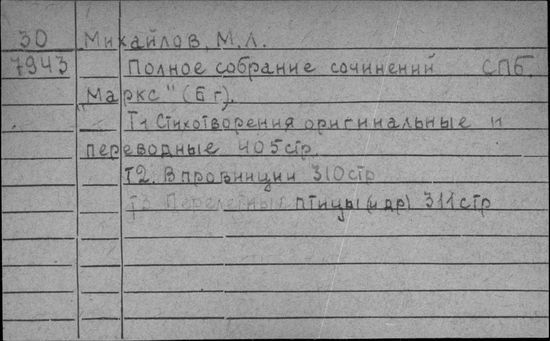 30 Михайлов, М.Л.
7943 Полное собрание сочинений СПб.
„Маркс" (Б г).
Т1 Стихотворения оригинальные и
переводные 405стр.
Т2. В провинции 310стр
Т3 Перелетные птицы (и др) 311стр